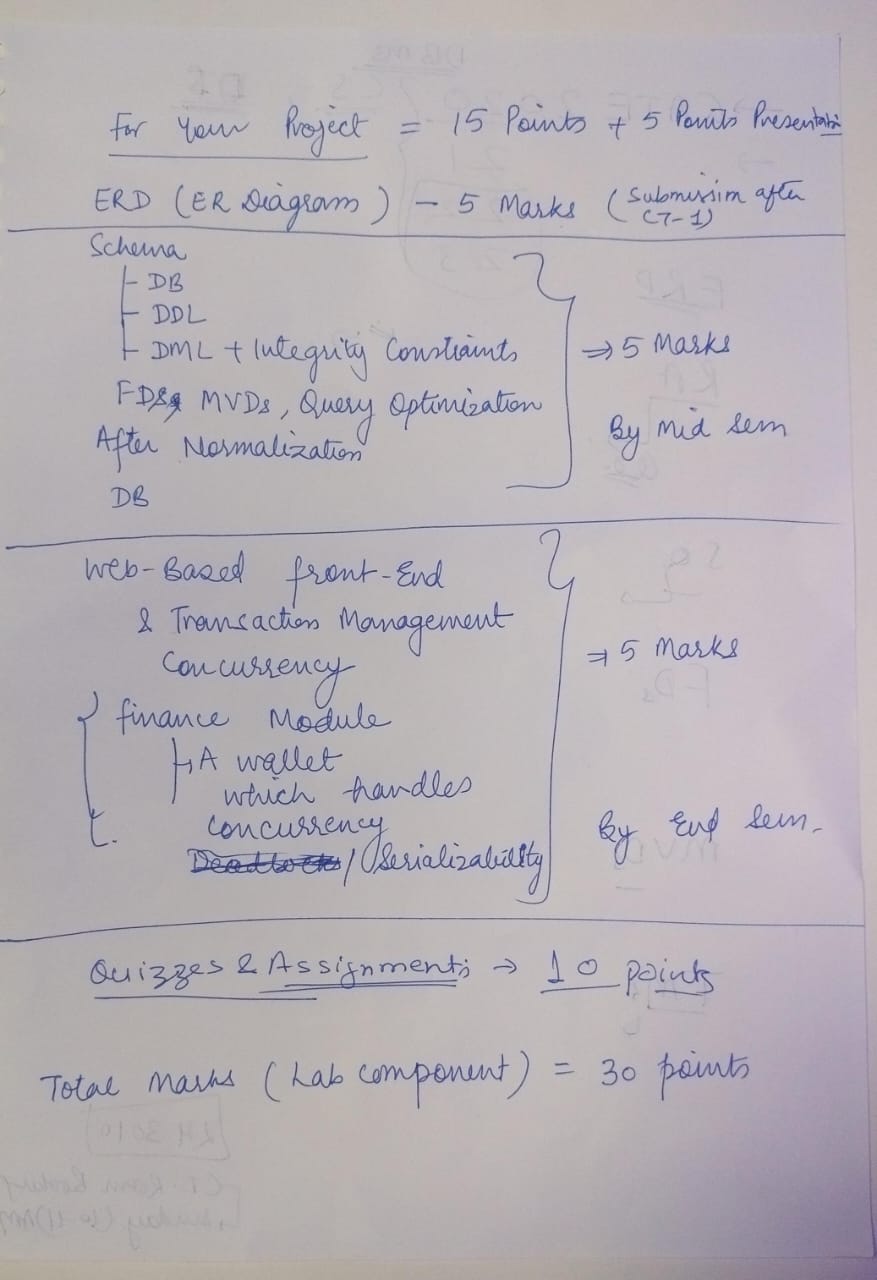 For Your Project = 15 Points + 5 Points Presentatn
ERD (ER Diagram) - 5 Marks (Submission after
CT-1)
Schema
DB
DDL
DML + Integrity Constraints
FDs, MVDs, Query Optimization
After Normalization
DB
⇒ 5 Marks
By mid sem
Web-Based front-End
& Transaction Management
Concurrency
finance Module
A wallet
which handles
concurrency
/ Serializability
⇒ 5 Marks
By End Sem.
Quizzes & Assignments → 10 points
Total Marks (Lab component) = 30 points